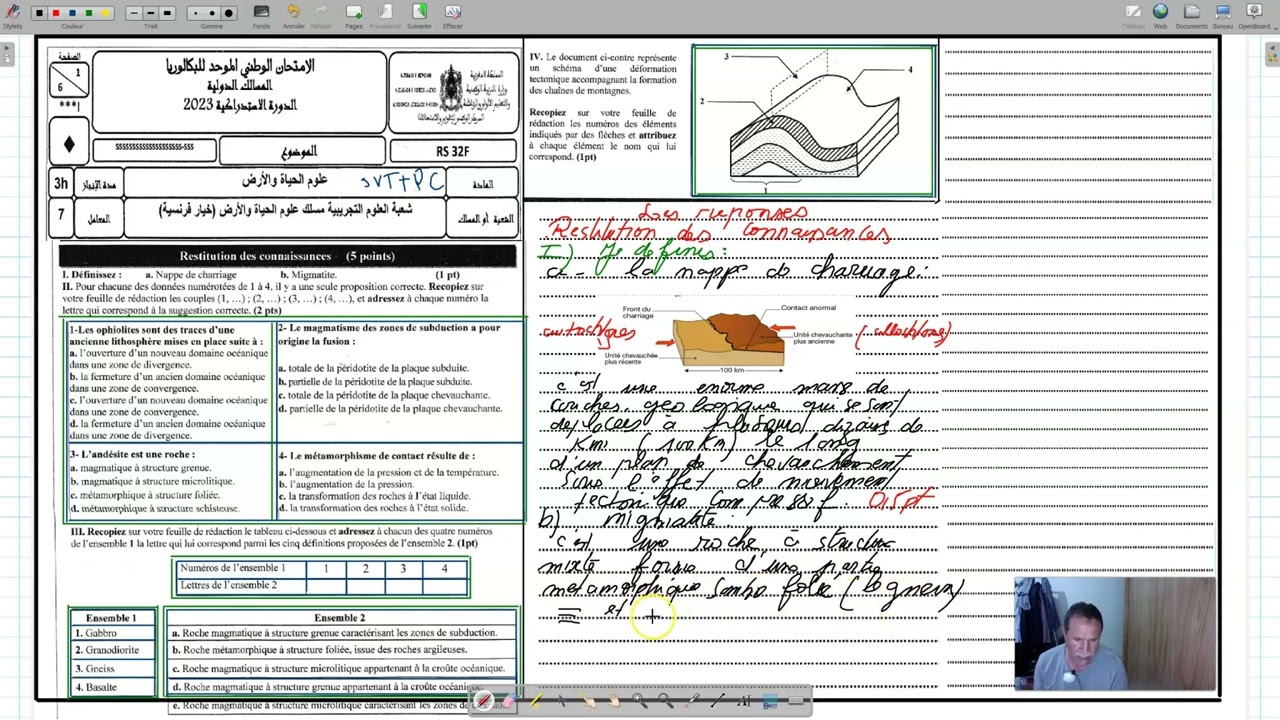 Stylets
Couleur
Trait
Gomme
Fonds
Annuler
Rétablir
Pages
Précédente
Suivante
Effacer
Tableau
Web
Documents
Bureau
OpenBoard
الصفحة
1
6
***I
♦
الإمتحان الوطني الموحد للبكالوريا
المسالك الدولية
الدورة الاستدراكية 2023
SSSSSSSSSSSSSSSSSSSS-SSS
الموضوع
RS 32F
3h
مدة الإنجاز
علوم الحياة والأرض
SVT+PC
المادة
7
المعامل
شعبة العلوم التجريبية مسلك علوم الحياة والأرض (خيار فرنسية)
الشعبة أو المسلك
Restitution des connaissances (5 points)
I. Définissez : a. Nappe de charriage b. Migmatite. (1 pt)
II. Pour chacune des données numérotées de 1 à 4, il y a une seule proposition correcte. Recopiez sur
votre feuille de rédaction les couples (1, ...) ; (2, ...) ; (3, ...) ; (4, ...), et adressez à chaque numéro la
lettre qui correspond à la suggestion correcte. (2 pts)
1-Les ophiolites sont des traces d'une
ancienne lithosphère mises en place suite à :
a. l'ouverture d'un nouveau domaine océanique
dans une zone de divergence.
b. la fermeture d'un ancien domaine océanique
dans une zone de convergence.
c. l'ouverture d'un nouveau domaine océanique
dans une zone de convergence.
d. la fermeture d'un ancien domaine océanique
dans une zone de divergence.
2- Le magmatisme des zones de subduction a pour
origine la fusion :
a. totale de la péridotite de la plaque subduite.
b. partielle de la péridotite de la plaque subduite.
c. totale de la péridotite de la plaque chevauchante.
d. partielle de la péridotite de la plaque chevauchante.
3- L'andésite est une roche :
a. magmatique à structure grenue.
b. magmatique à structure microlitique.
c. métamorphique à structure foliée.
d. métamorphique à structure schisteuse.
4- Le métamorphisme de contact résulte de :
a. l'augmentation de la pression et de la température.
b. l'augmentation de la pression.
c. la transformation des roches à l'état liquide.
d. la transformation des roches à l'état solide.
III. Recopiez sur votre feuille de rédaction le tableau ci-dessous et adressez à chacun des quatre numéros
de l'ensemble 1 la lettre qui lui correspond parmi les cinq définitions proposées de l'ensemble 2. (1pt)
Numéros de l'ensemble 1 1 2 3 4
Lettres de l'ensemble 2
Ensemble 1
1. Gabbro
2. Granodiorite
3. Gneiss
4. Basalte
Ensemble 2
a. Roche magmatique à structure grenue caractérisant les zones de subduction.
b. Roche métamorphique à structure foliée, issue des roches argileuses.
c. Roche magmatique à structure microlitique appartenant à la croûte océanique.
d. Roche magmatique à structure grenue appartenant à la croûte océani
e. Roche magmatique à structure microlitique caractérisant les zones de
IV. Le document ci-contre représente
un schéma d'une déformation
tectonique accompagnant la formation
des chaînes de montagnes.
Recopiez sur votre feuille de
rédaction les numéros des éléments
indiqués par des flèches et attribuez
à chaque élément le nom qui lui
correspond. (1pt)
3
4
2
1
Les reponses
Restitution des connaissances
I) Je definis :
a - la nappe de charriage :
Front du
charriage
Contact anormal
Unité chevauchante
plus ancienne
Unité chevauchée
plus récente
100 km
c'est une enorme mass de
couches geologique qui se sont
deplacées à plusieurs dizaine de
Km (100Km) le long
d'un plan de chevauchement
sous l'effet de mouvement
tectonique compressif. 0,5 pt
b)
c'est une roche à structure
mixte forme d'une partie
metamorphique sombre folié (le gneiss)
et +